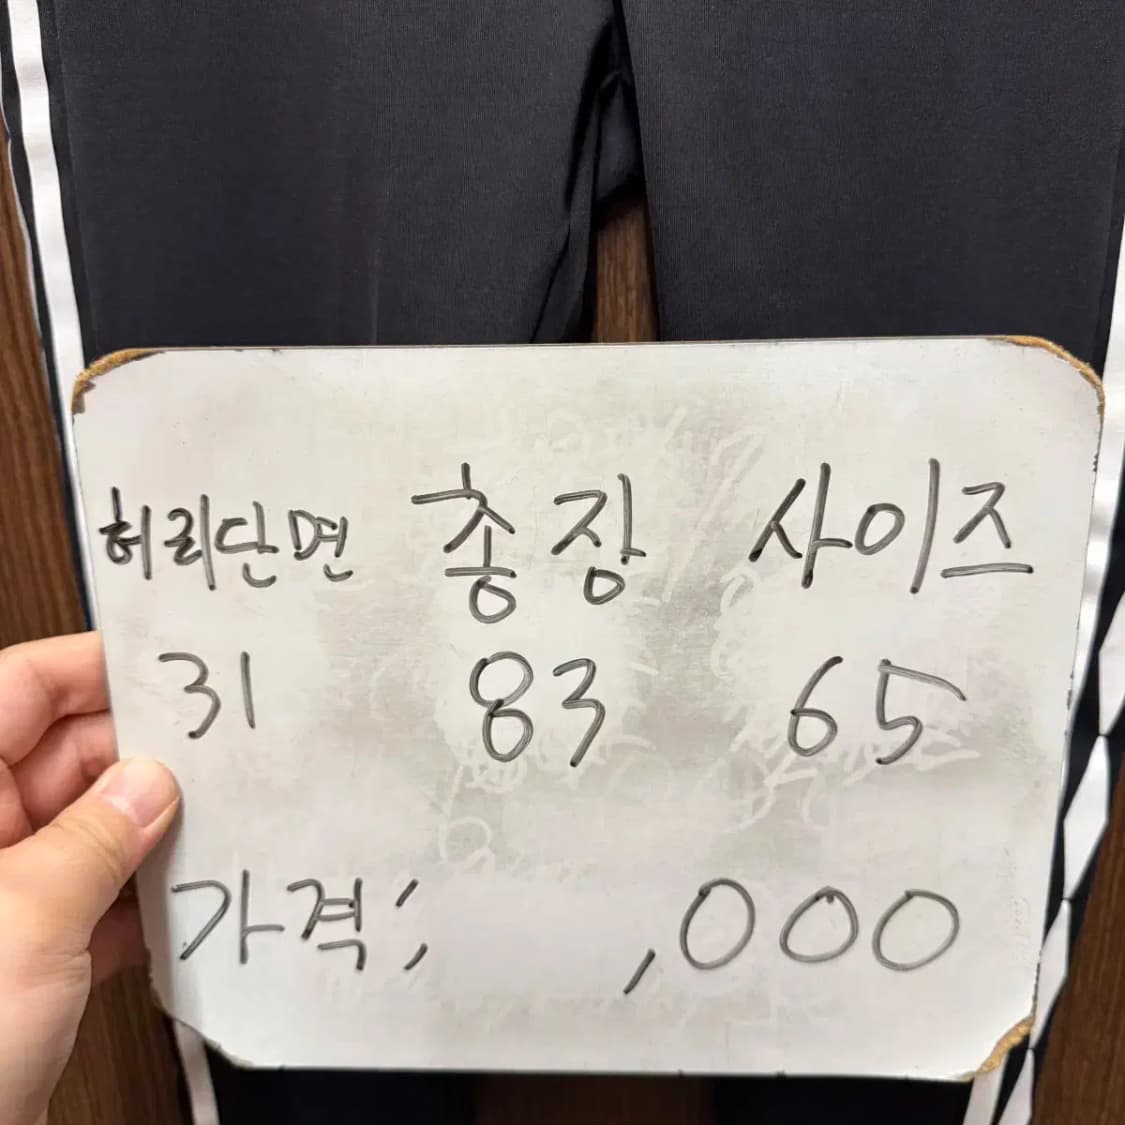 허리단면 총장 사이즈
31 83 65
가격; ,000